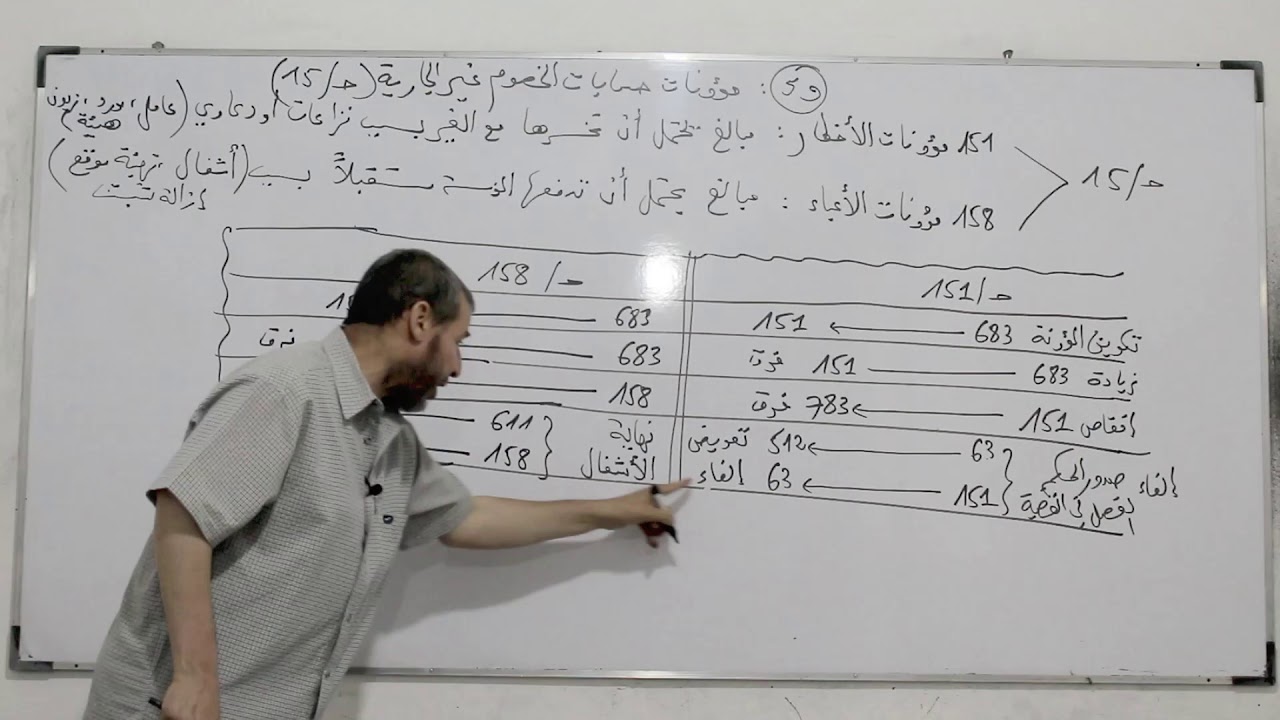 و5: مؤونات حسابات الخصوم غير الجارية (حـ/15)
151 مؤونات الأخطار: مبالغ يحتمل أن تخسرها مع الغير بسبب نزاعات أو دعاوي (عامل، مورد، زبون
هيئة)
حـ/15
158 مؤونات الأعباء: مبالغ يحتمل أن تدفعها المؤسسة مستقبلاً بسبب (أشغال، تهيئة موقع)
إزالة تثبيت
حـ/151 حـ/158
تكوين المؤونة 683 ← 151 683
زيادة 683 151 فرق 683 فرق
انقاص 151 ← 783 فرق 158
الغاء صدور الحكم 63 ← 512 تعويض نهاية 611
الفصل في القضية 151 ← 63 الغاء الأشغال 158